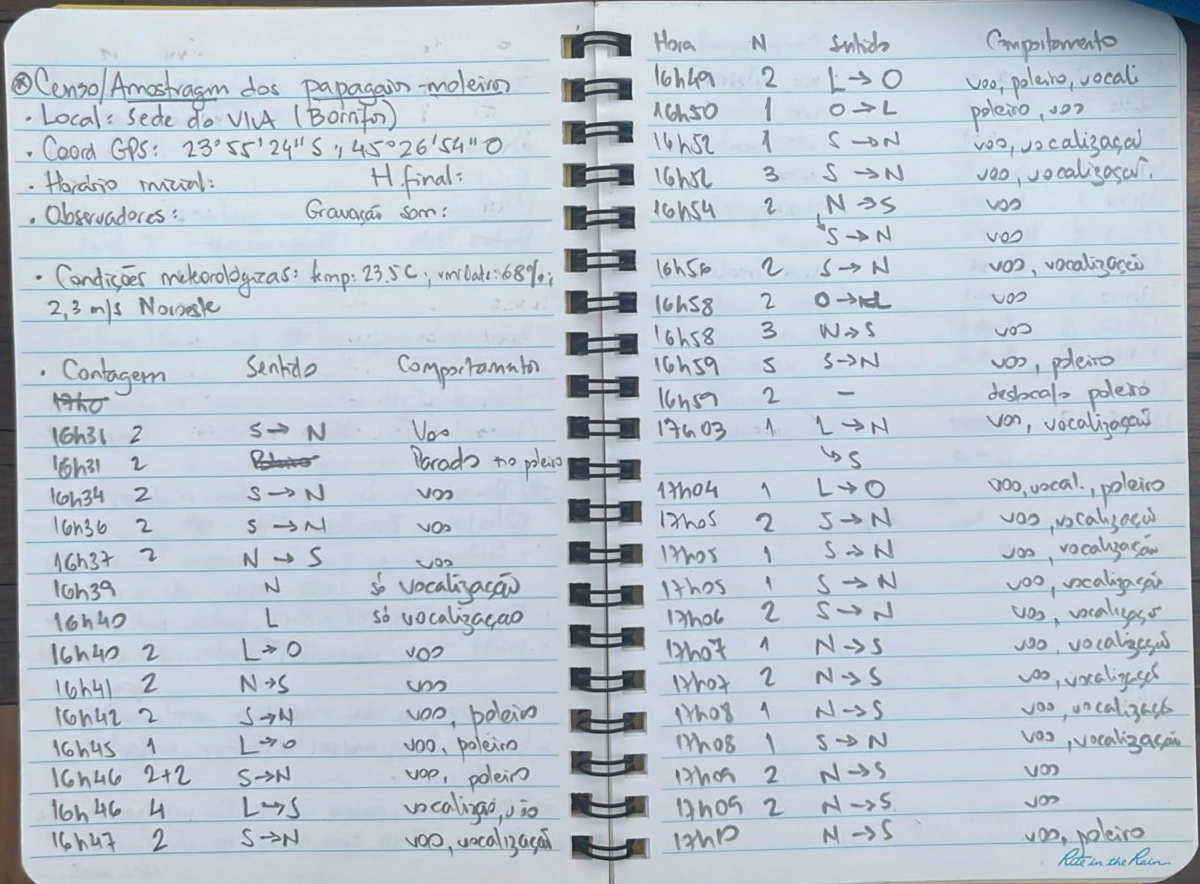 ⊛ Censo/Amostragm dos papagaios-moleiros
· Local: Sede do VIVA (Borrifos)
· Coord GPS: 23°55'24"S ; 45°26'54"O
· Horário inicial: H final:
· Observadores: Gravação som:
· Condições meteorológicas: temp: 23.5C ; umidade: 68% ;
2,3 m/s Noroeste
· Contagem Sentido Comportamento
17h0
16h31 2 S→N Voo
16h31 2 Parado no poleiro
16h34 2 S→N voo
16h36 2 S→N voo
16h37 2 N→S voo
16h39 N só vocalização
16h40 L só vocalizaçao
16h40 2 L→O voo
16h41 2 N→S voo
16h42 2 S→N voo, poleiro
16h45 1 L→O voo, poleiro
16h46 2+2 S→N voo, poleiro
16h46 4 L→S vocalização, vôo
16h47 2 S→N voo, vocalização
Hora N Sentido Comportamento
16h49 2 L→O voo, poleiro, vocali
16h50 1 O→L poleiro, voo
16h52 1 S→N voo, vocalização
16h52 3 S→N voo, vocalização.
16h54 2 N→S voo
↳S→N voo
16h56 2 S→N voo, vocalização
16h58 2 O→L voo
16h58 3 N→S voo
16h59 5 S→N voo, poleiro
16h59 2 - deslocado poleiro
17h03 1 L→N voo, vocalização
↳S
17h04 1 L→O voo, vocal., poleiro
17h05 2 S→N voo, vocalização
17h05 1 S→N voo, vocalização
17h05 1 S→N voo, vocalização
17h06 2 S→N voo, vocalização
17h07 1 N→S voo, vocalização
17h07 2 N→S voo, vocalização
17h08 1 N→S voo, vocalização
17h08 1 S→N voo, vocalização
17h09 2 N→S voo
17h09 2 N→S voo
17h10 N→S voo, poleiro
Rite in the Rain